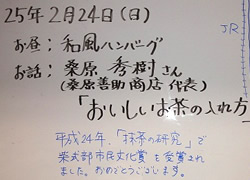 25年2月24日(日)
JR
お昼:和風ハンバーグ
お話:桑原 秀樹さん
(桑原善助商店 代表)
「おいしいお茶の入れ方
平成24年、「抹茶の研究」で
紫式部市民文化賞を受賞され
ました。おめでとうございます。